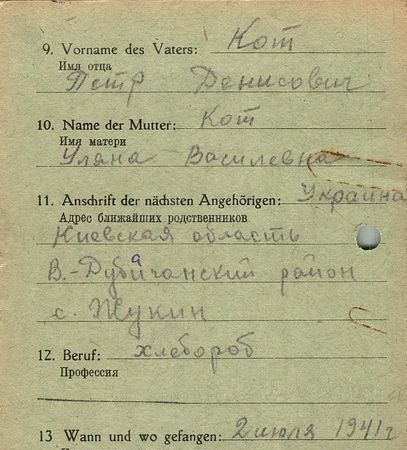 9. Vorname des Vaters: Кот
Имя отца
Петр Денисович
10. Name der Mutter: Кот
Имя матери
Уляна Василевна
11. Anschrift der nächsten Angehörigen: Украина
Адрес ближайших родственников
Киевская область
В.-Дубичанский район
с. Жукин
12. Beruf: хлебороб
Профессия
13 Wann und wo gefangen: 2 июля 1941 г